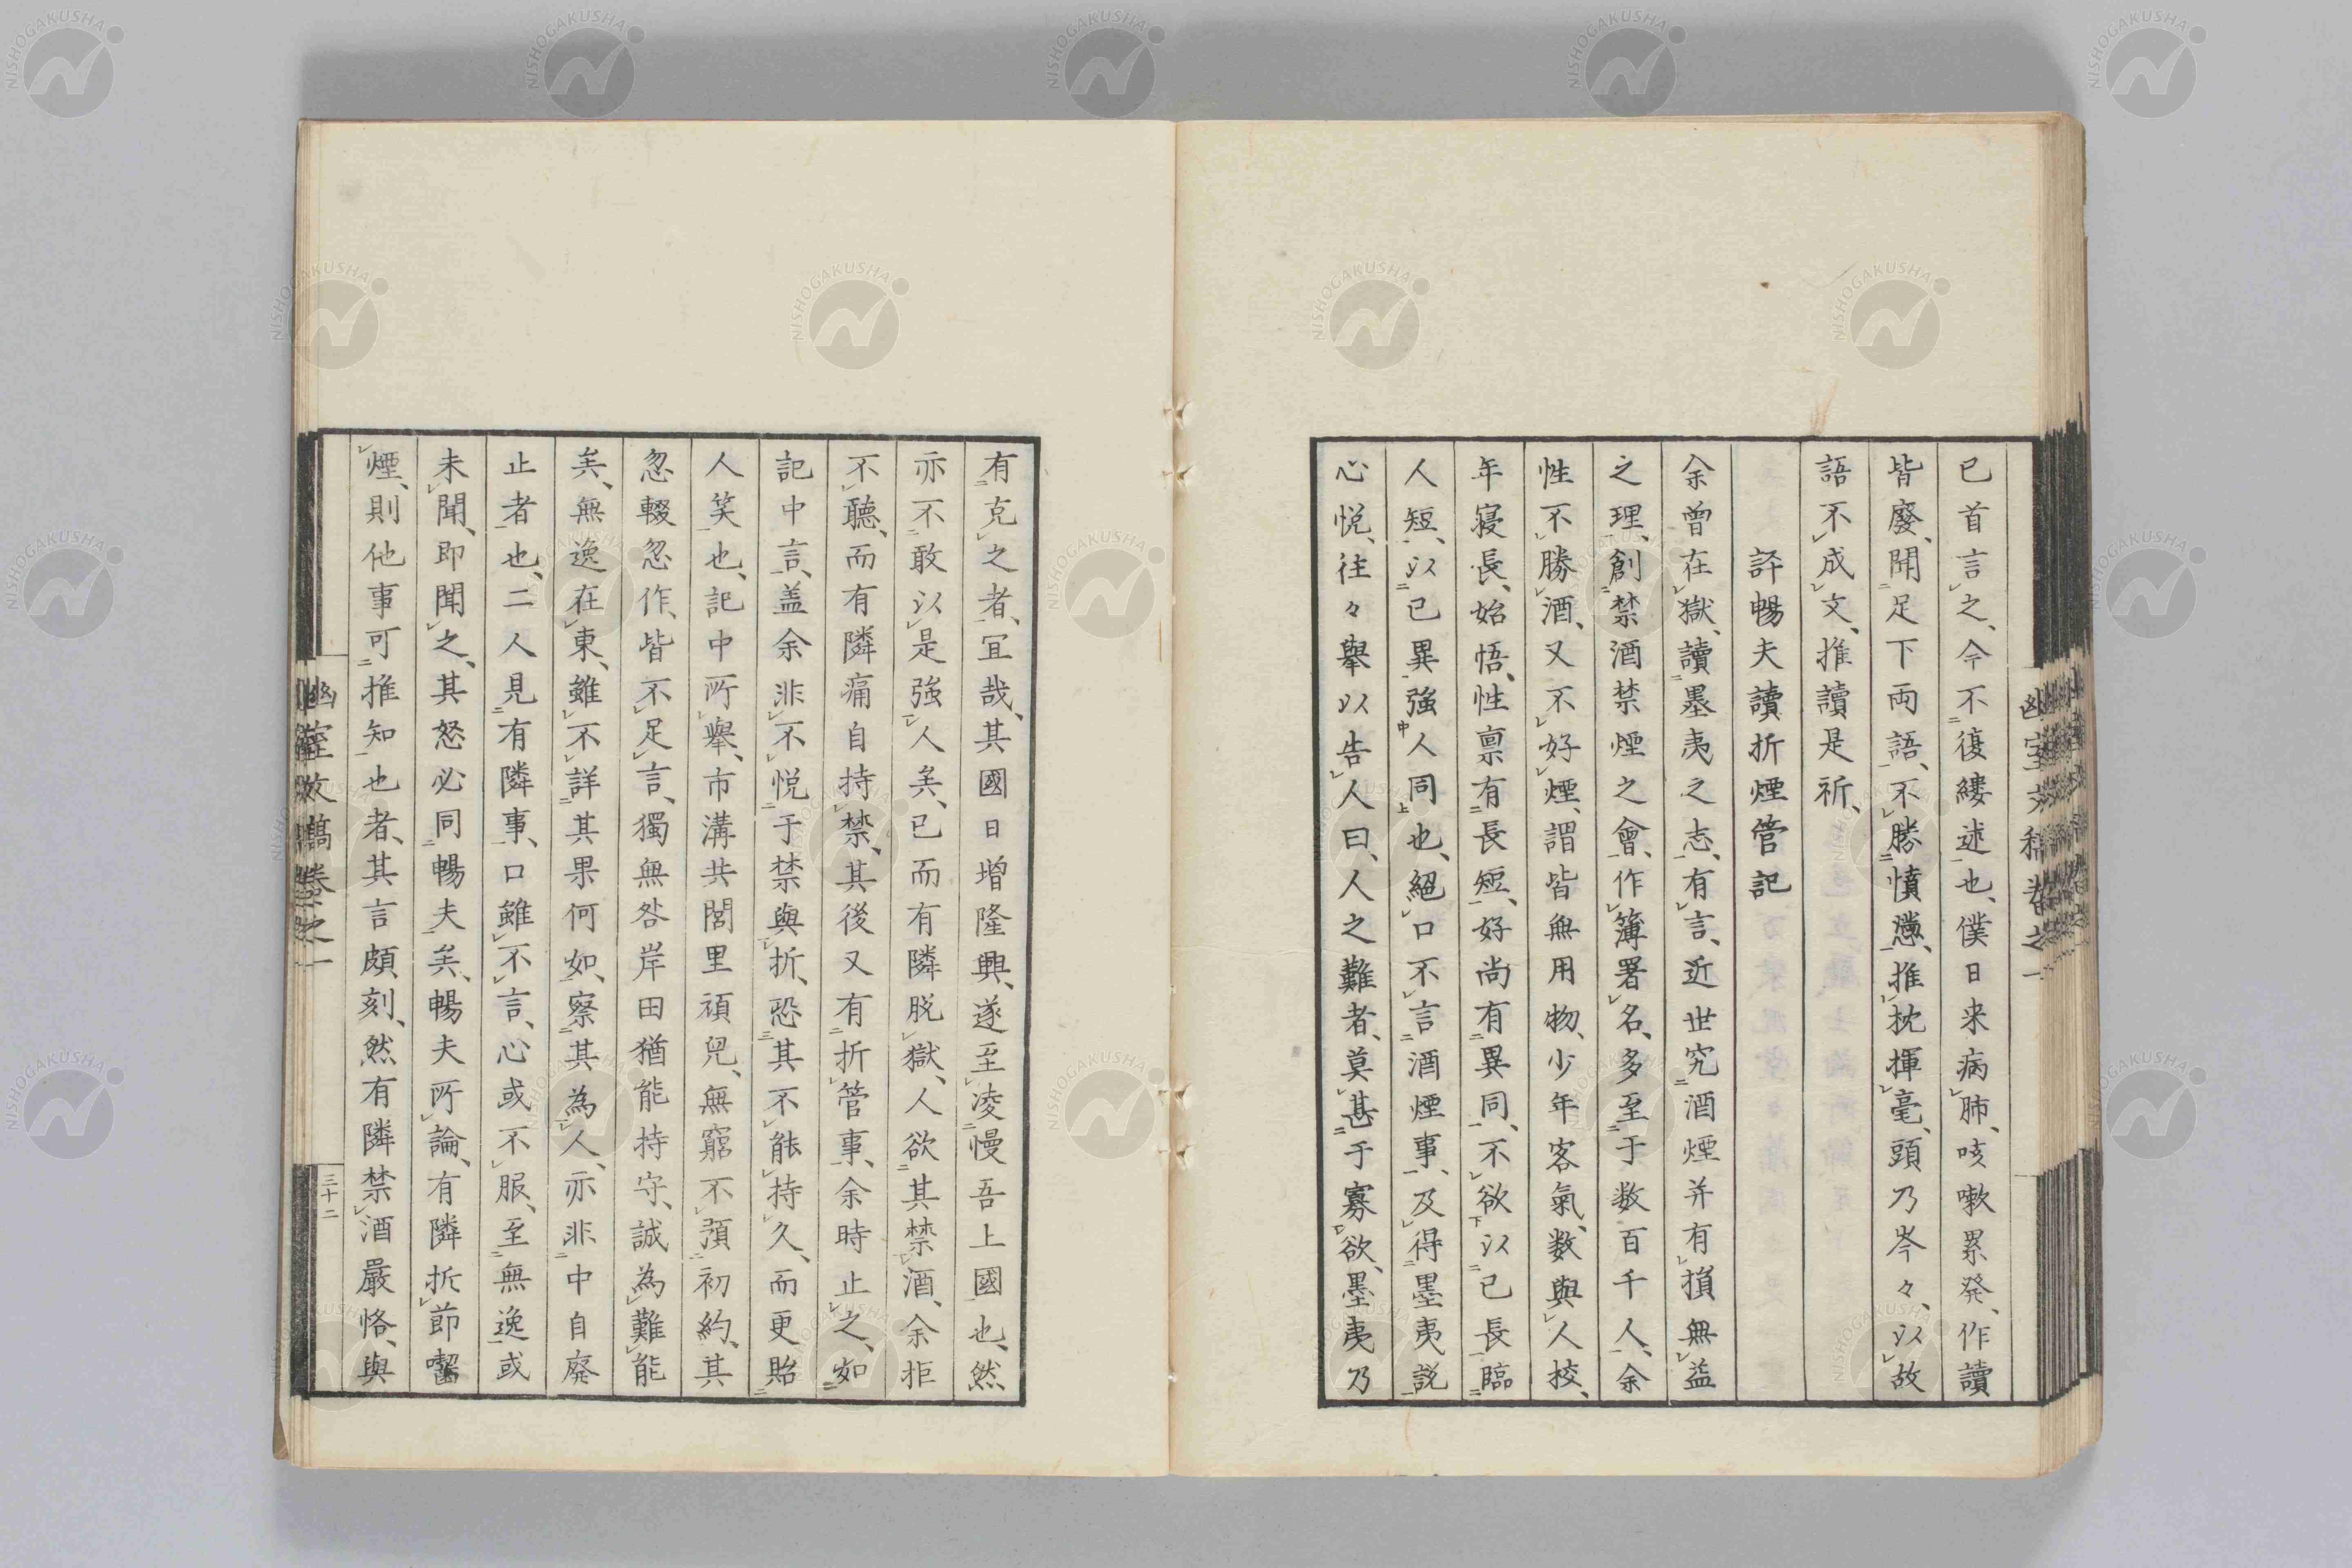 已首言之、今不復縷述也、僕日来病肺、咳嗽累発、作讀
皆廢、聞足下両語、不勝憤懣、推枕揮毫、頭乃岑々、以故
語不成文、推讀是祈、
評暢夫讀折煙管記
余曾在獄、讀墨夷之志、有言、近世究酒煙并有損無益
之理、創禁酒禁煙之會、作簿署名、多至于数百千人、余
性不勝酒、又不好煙、謂皆無用物、少年客氣、数與人校、
年寝長、始悟、性稟有長短、好尚有異同、不欲以已長臨
人短、以已異強人同也、絕口不言酒煙事、及得墨夷説
心悦、往々舉以告人曰、人之難者、莫甚于寡欲、墨夷乃
有克之者、宜哉、其國日增隆興、遂至凌慢吾上國也、然
亦不敢以是強人矣、已而有隣脱獄、人欲其禁酒、余拒
不聴、而有隣痛自持禁、其後又有折管事、余時止之、如
記中言、盖余非不悦于禁與折、恐其不能持久、而更貽
人笑也、記中所舉、市溝共閭里頑兒、無窮不預初約、其
忽輟忽作、皆不足言、獨無咎岸田猶能持守、誠為難能
矣、無逸在東、雖不詳其果何如、察其為人、亦非中自廢
止者也、二人見有隣事、口雖不言、心或不服、至無逸或
未聞、即聞之、其怒必同暢夫矣、暢夫所論、有隣折節嚙
煙、則他事可推知也者、其言頗刻、然有隣禁酒嚴恪、與
幽室文稿巻之一
三十二
幽室文稿巻之一